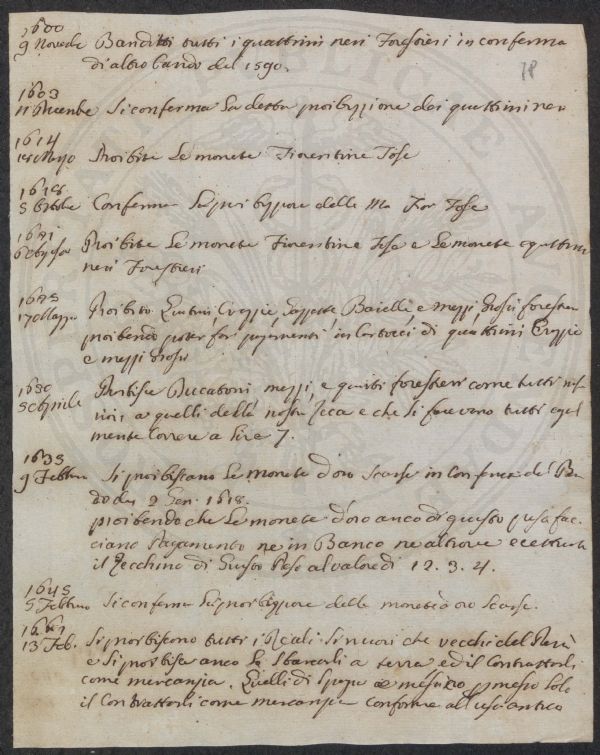 1600
9 Novebe Banditti tutti i quattrini neri Forestieri in conferma
di altro bando del 1590.
18
1603
Si conferma la detta proibizione dei quattrini neri
1614
Proibite le monete Fiorentine Tose
1618
5 Ottobe Conferma proibizione delle Mo Fior Tose
Proibite le monete Fiorentine Tose e le monete e quattrini
neri Forestieri
Proibito Quattrini Crazzie, Baielle e mezzi Grossi forestieri
proibendo poter far pagamenti in Cartocci di quattrini Crazzie
e mezzi Grossi
5 Aprile Proibisce Ducatoni mezzi, e quarti forestieri come tutti
a quelli della nostra Zecca e che si facevano tutti
mente Correre a Lire 7.
9 Febbro Si proibiscano le monete d'oro Scarse in Conferma del Ban
do de 9 Gen. 1618.
proibendo che le monete d'oro anco di giusto peso fac-
ciano Pagamento ne in Banco ne altrove eccettuato
il Zecchino di Giusto Peso al valore di 12. 3. 4.
1645
5 Febbro Si conferma la proibizzione delle monete d'oro Scarse.
13 Feb. Si proibiscono tutti i Reali Si nuovi che vecchi del Perù
e Si proibisce anco lo Sbarcarli a terra ed il Contrattarli
come mercanzia. Quelli di Spagna e messico permesso solo
il Contrattarli come mercanzia conforme all uso antico